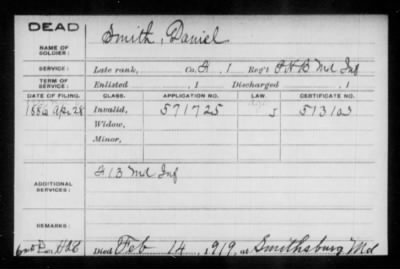 DEAD
NAME OF SOLDIER: Smith, Daniel
SERVICE: Late rank, Co. , 1 Reg't P.H.B. Md Inf
TERM OF SERVICE: Enlisted , 1 Discharged , 1
DATE OF FILING. CLASS. APPLICATION NO. LAW. CERTIFICATE NO.
1886 Apr 28 Invalid, 571725 513103
Widow,
Minor,
ADDITIONAL SERVICES: 13 Md Inf
REMARKS:
Died Feb 14, 1919, at Smithsburg Md